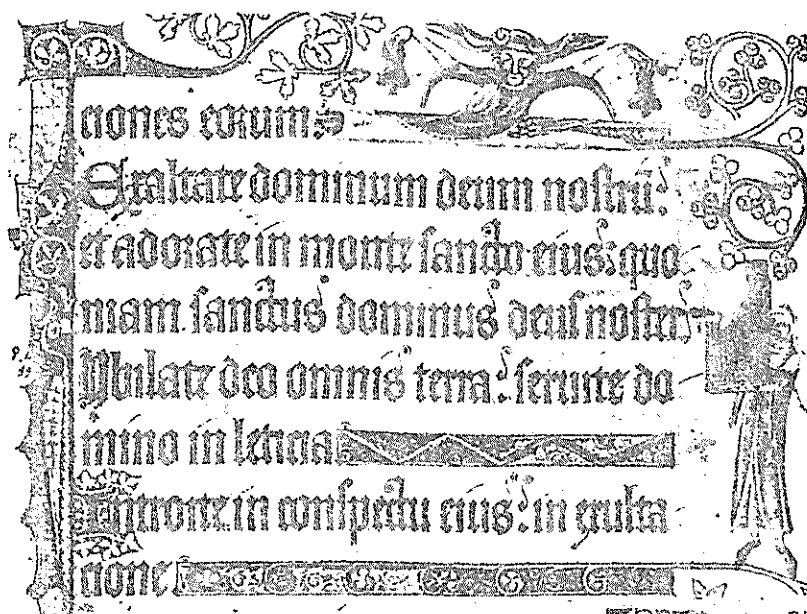 ciones eorum:
Exaltate dominum deum nostrū:
et adorate in monte sancto eius: quo
niam sanctus dominus deus noster
Jubilate deo omnis terra: seruite do
mino in leticia
Introite in conspectu eius: in exulta
cione